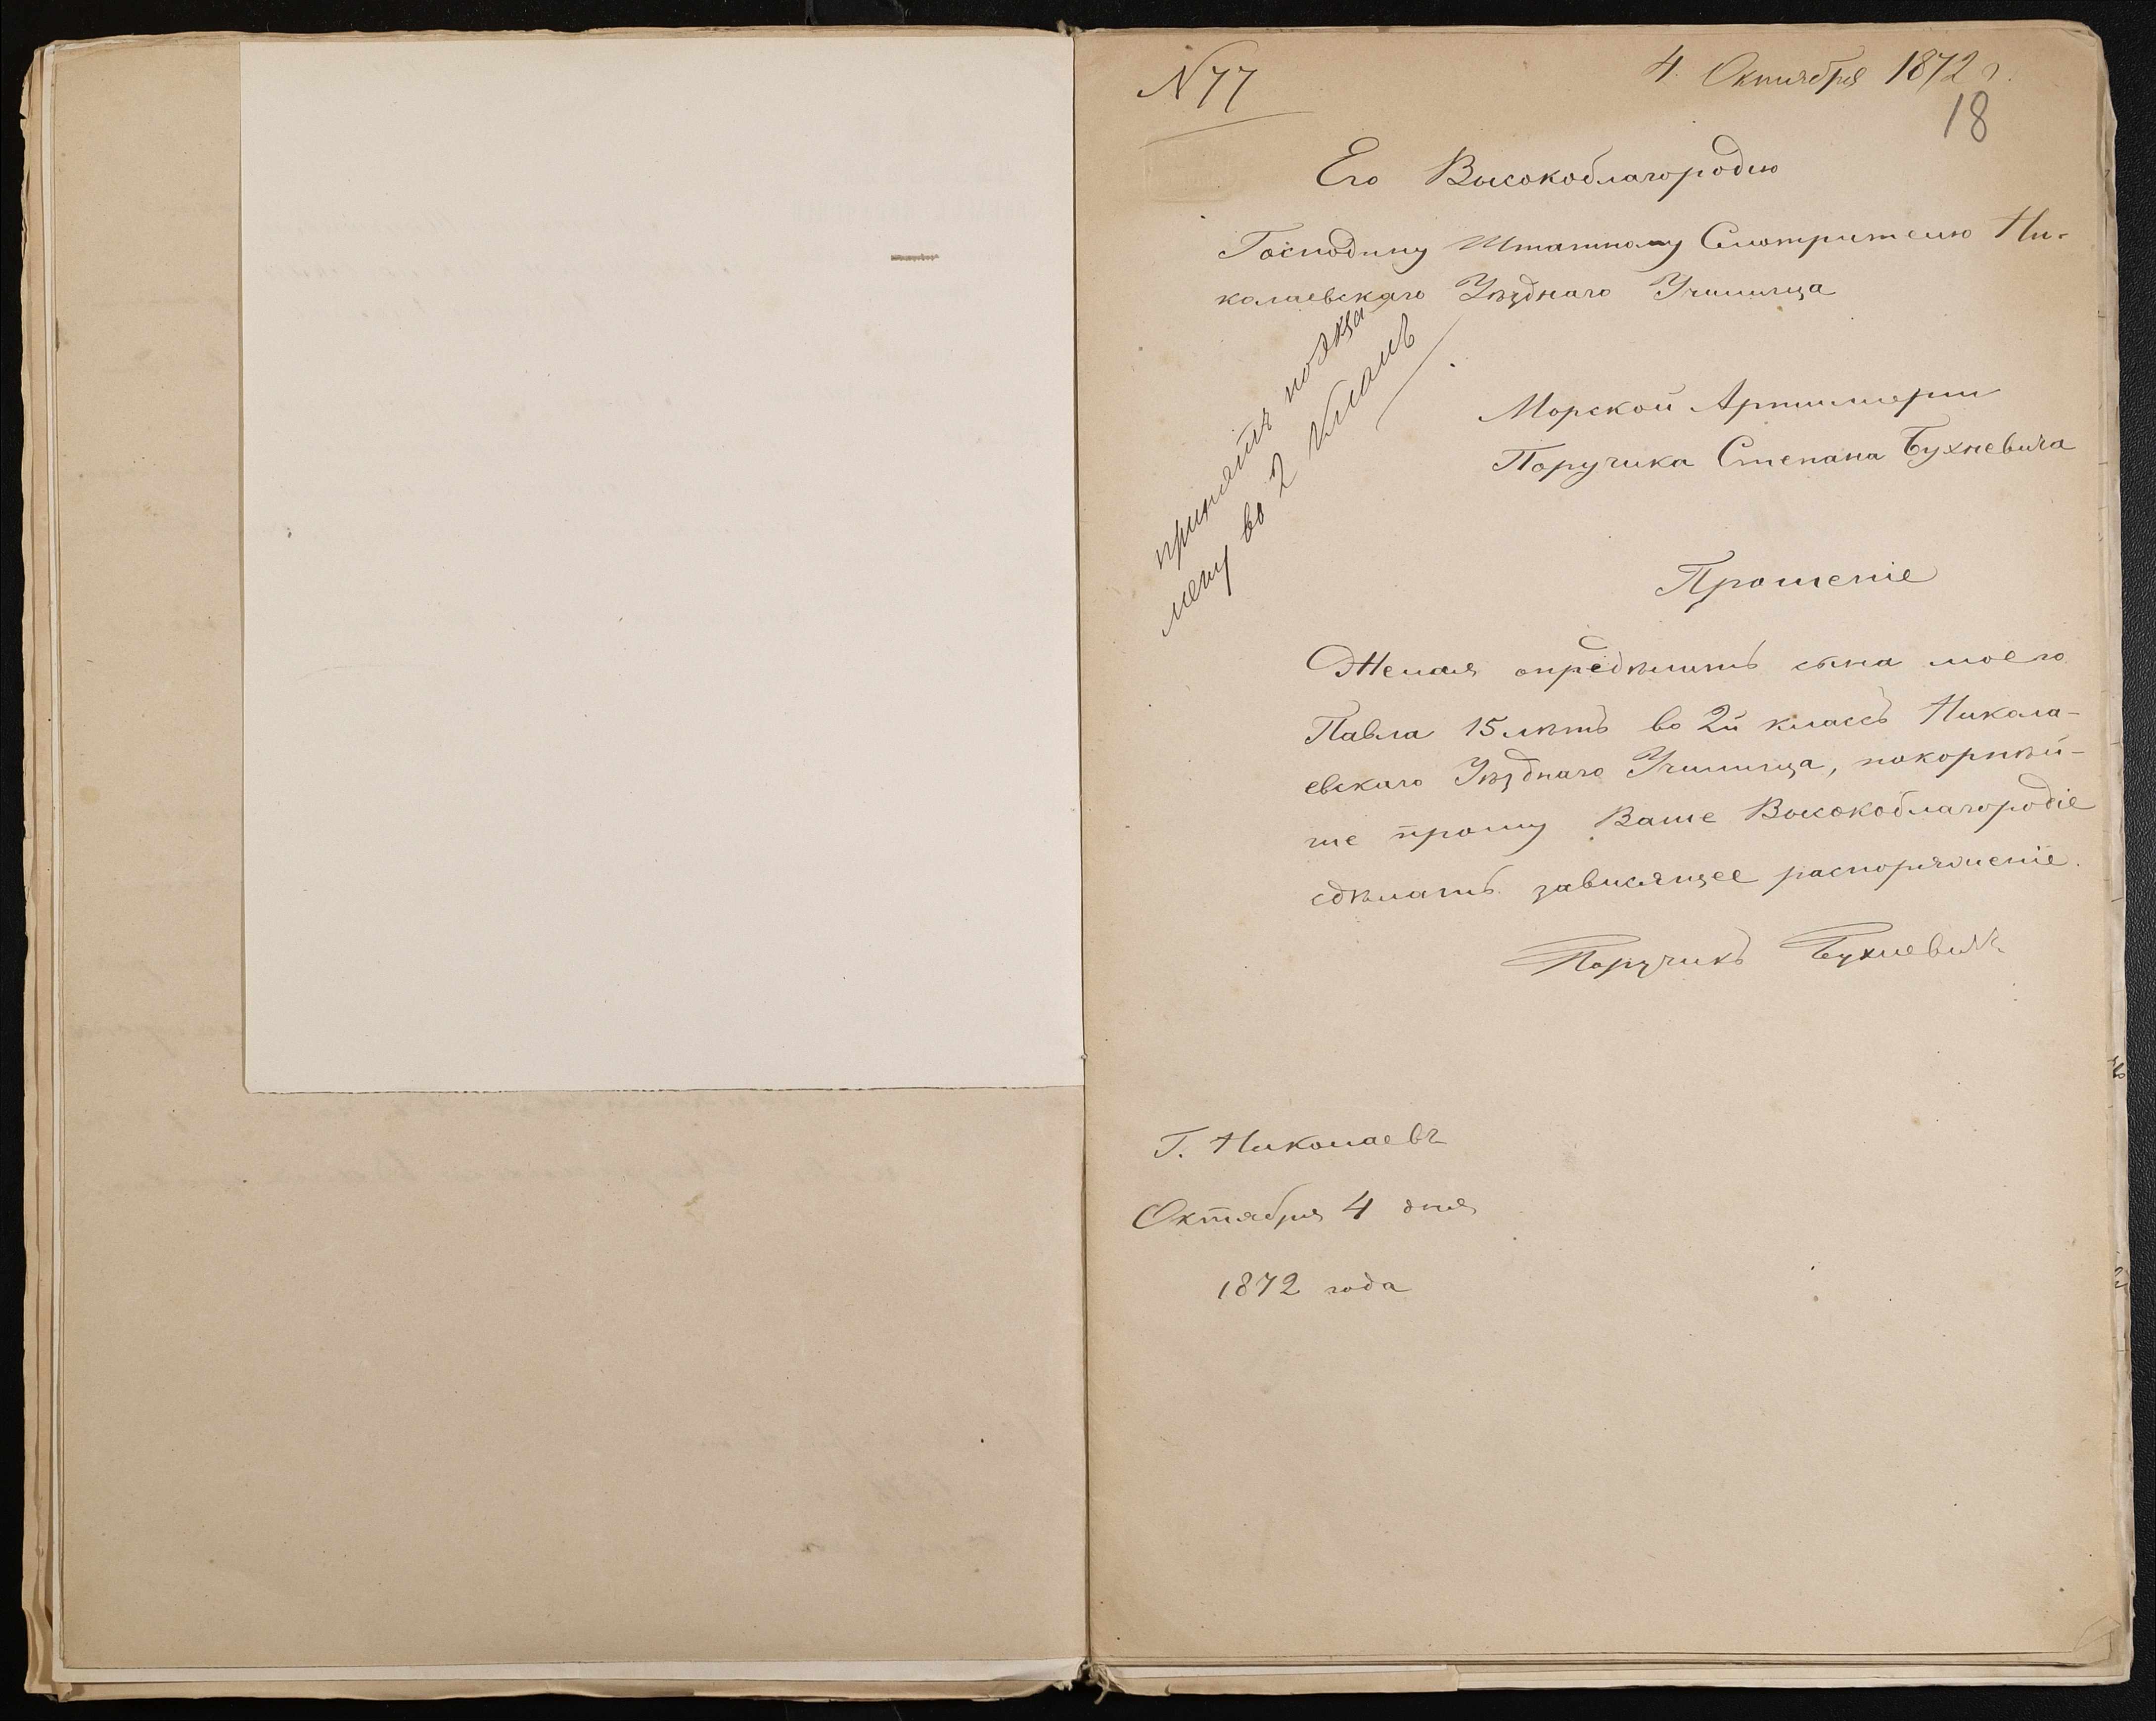 N 77
4. Октября 1872 г.
18
Его Высокоблагородію
Господину Штатному Смотрителю Ни-
колаевскаго Уѣзднаго Училища
принять по экза
мену во 2 классъ
Морской Артиллеріи
Поручика Степана Бухневича
Прошеніе
Желая опредѣлить сына моего
Павла 15 лѣтъ во 2й классъ Никола-
евскаго Уѣзднаго Училища, покорнѣй-
ше прошу Ваше Высокоблагородіе
сдѣлать зависящее распоряженіе.
Поручикъ Бухневичъ
Г. Николаевъ
Октября 4 дня
1872 года